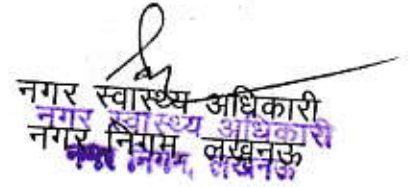 नगर स्वास्थ्य अधिकारी
नगर स्वास्थ्य अधिकारी
नगर निगम, लखनऊ
नगर निगम, लखनऊ